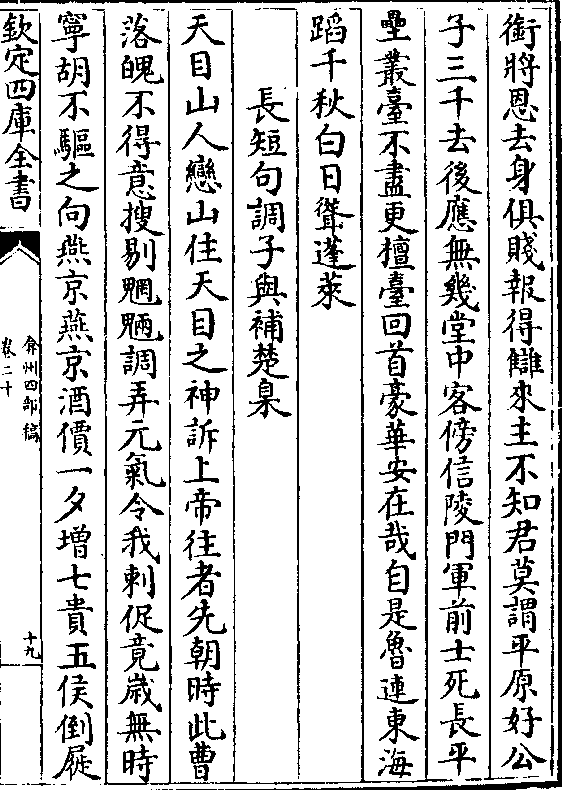 銜將恩去身俱賤報得讎來主不知君莫謂平原好公
子三千去後應無幾堂中客傍信陵門軍前士死長平
壘叢臺不盡更檀臺回首豪華安在哉自是魯連東海
蹈千秋白日聳蓬萊
長短句調子與補楚臬
天目山人戀山住天目之神訴上帝往者先朝時此曹
落魄不得意搜剔魍魎調弄元氣令我刺促竟歲無時
寧胡不驅之向燕京燕京酒價一夕增七貴五侯倒屣
欽定四庫全書
弇州四部稿
卷二十
十九